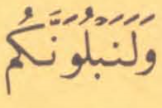 وَلَنَبْلُوَنَّكُم